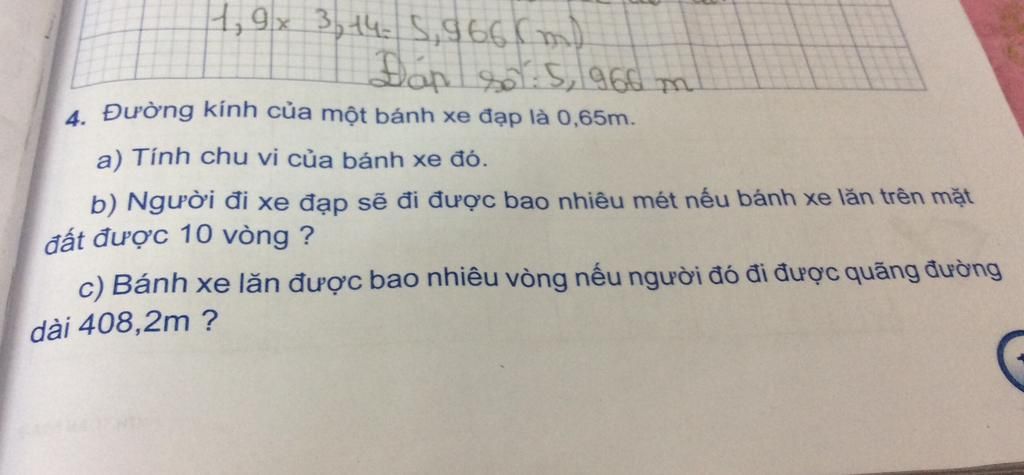 1,9 x 3,14 = 5,966 (m)
Đáp số : 5,966 m
4. Đường kính của một bánh xe đạp là 0,65m.
a) Tính chu vi của bánh xe đó.
b) Người đi xe đạp sẽ đi được bao nhiêu mét nếu bánh xe lăn trên mặt
đất được 10 vòng ?
c) Bánh xe lăn được bao nhiêu vòng nếu người đó đi được quãng đường
dài 408,2m ?